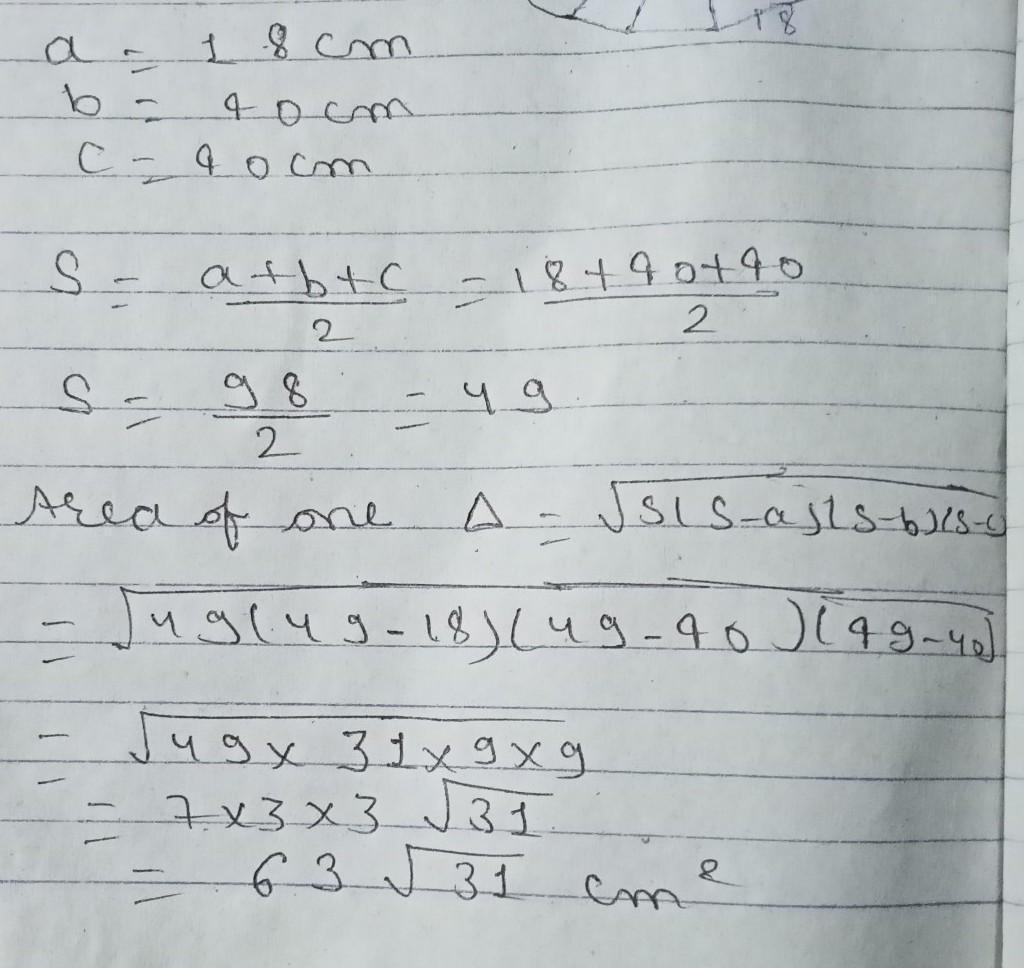 18
a = 18 cm
b = 40 cm
c = 40 cm
S = a+b+c/2 = 18+40+40/2
S = 98/2 = 49
Area of one Δ = √S(S-a)(S-b)(S-c)
= √49(49-18)(49-40)(49-40)
= √49x 31x9x9
= 7x3x3 √31
= 63 √31 cm²